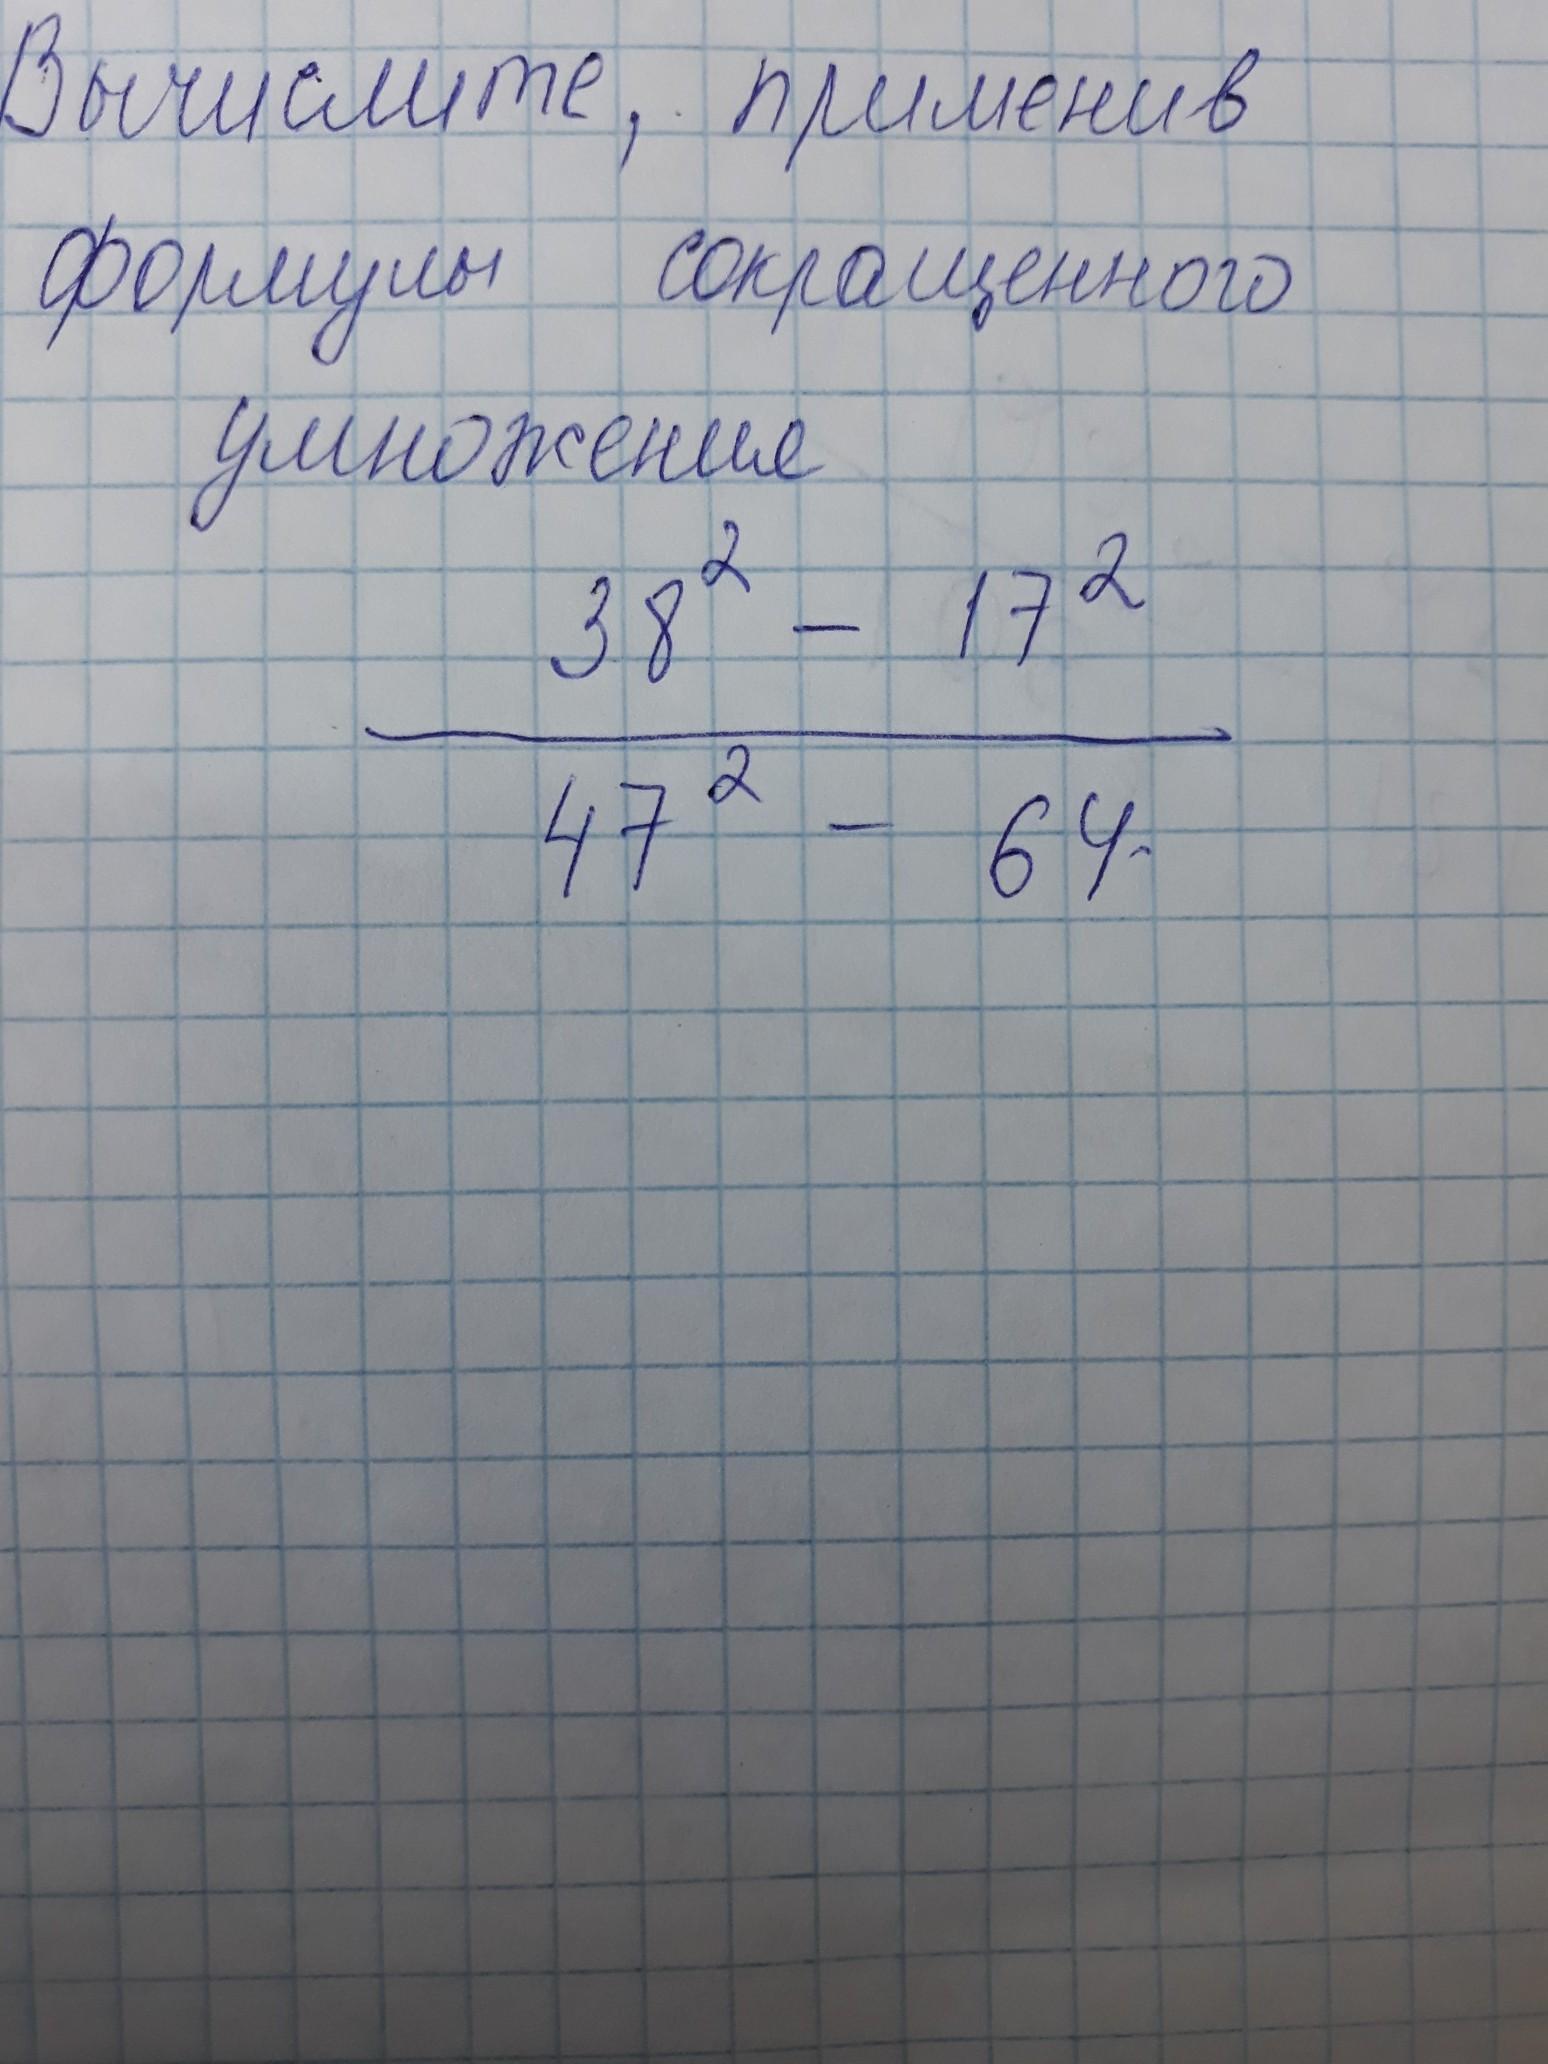 Вычислите, применив
формулы сокращенного
умножение
38² - 17²
47² - 64